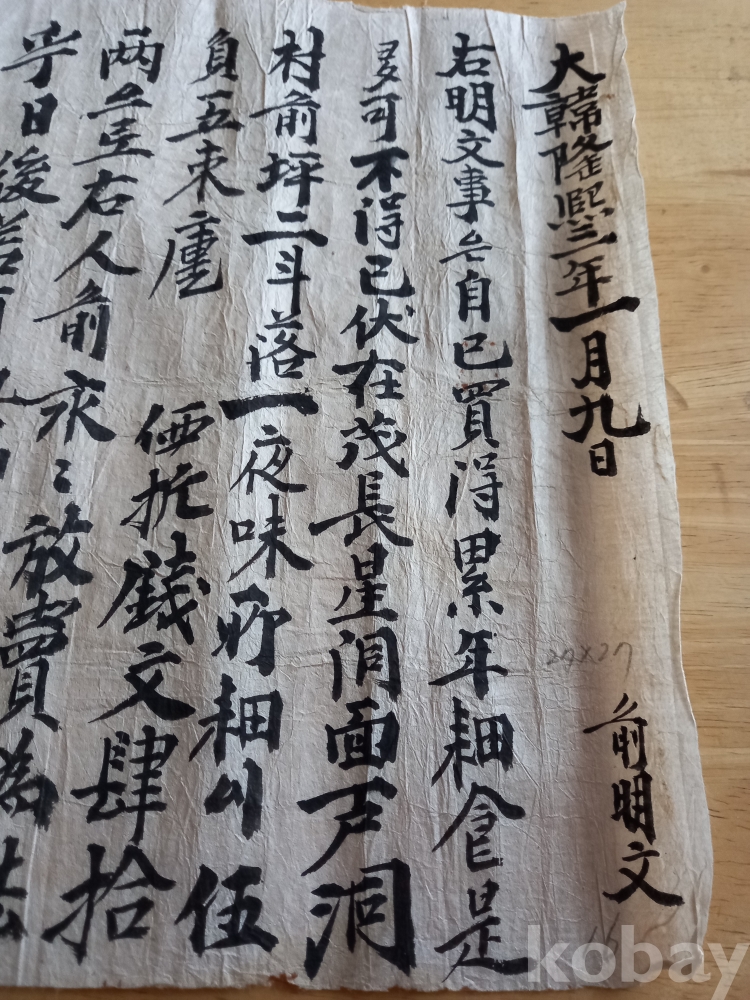 大韓隆熙三年一月九日 前明文
右明文事自己買得累年耕食是
多可不得已伏在茂長星洞面芦洞
村前坪二斗落一夜味所耕川伍
負五束庫 価折錢文肆拾
両右人前永々放賣為去
乎日後若有
27x27
kobay